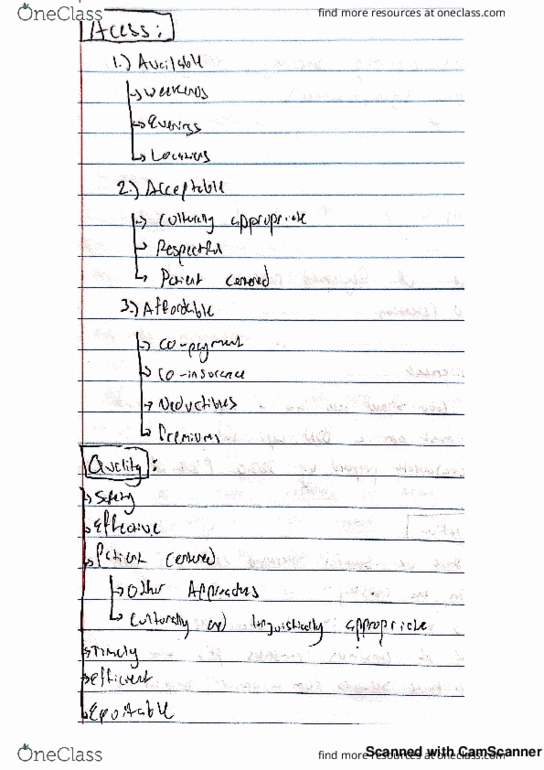 OneClass
find more resources at oneclass.com
Acess:
1.) Available
→ weekends
→ Evenings
→ Locations
2.) Acceptable
→ Culturally appropriate
→ Respectful
→ Patient Centered
3.) Affordable
→ co-payment
→ co-insurence
→ Deductibles
→ Premiums
Quality:
→ Safety
→ Effective
→ Patient Centered
→ Other Approaches
→ Culturally and linguistically appropriate
→ Timely
→ efficient
→ Equitable
OneClass
find more resources at oneclass.com
Scanned with CamScanner